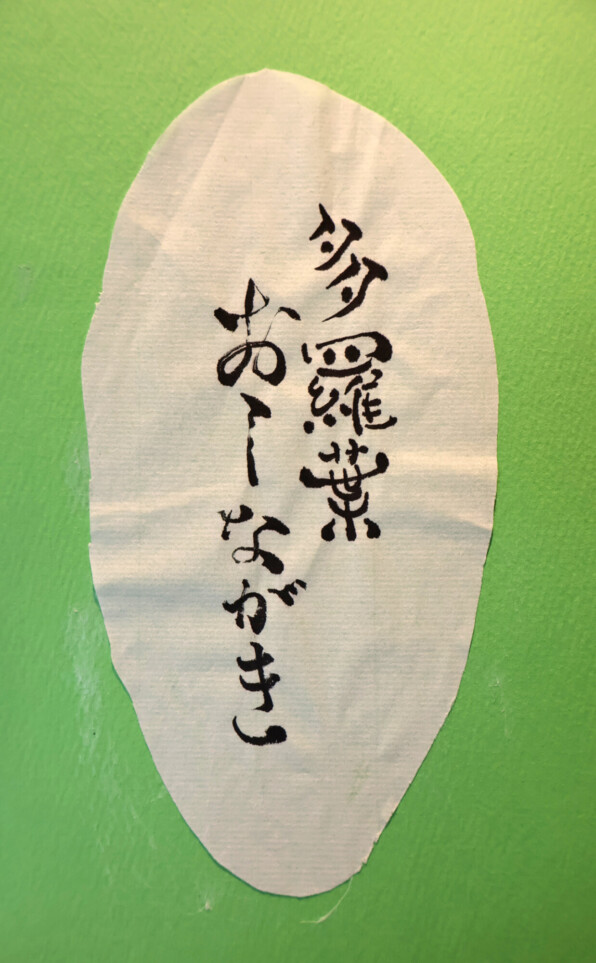 多羅葉
おしながき